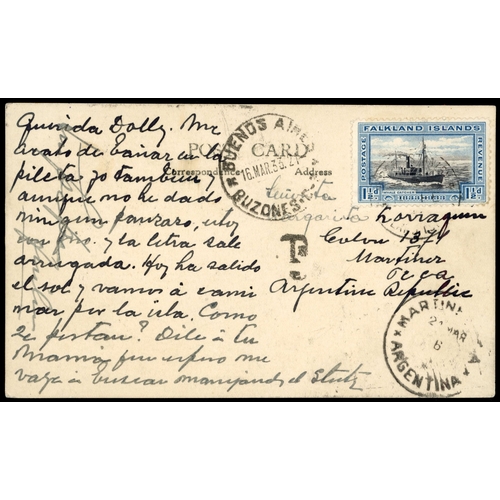 Querida Dolly. Me
acabo de bañar en la
pileta yo tambien y
aunque no he dado
ningun panzaso, estoy
con frio. y la letra sale
arrugada. Hoy ha salido
el sol y vamos á cami
nar por la isla. Como
se portan? Dile á tu
Mama que espero me
vaya á buscar manejando el Stutz
POST CARD
Correspondence
Address
BUENOS AIRES
16.MAR.33.21
BUZONES
FALKLAND ISLANDS
POSTAGE
REVENUE
1½d
1½d
1833-1933
Señorita
Margarita Larraquin
Colon 1371
Martinez
Argentine Republic
T
MARTINEZ
21 MAR
6
ARGENTINA